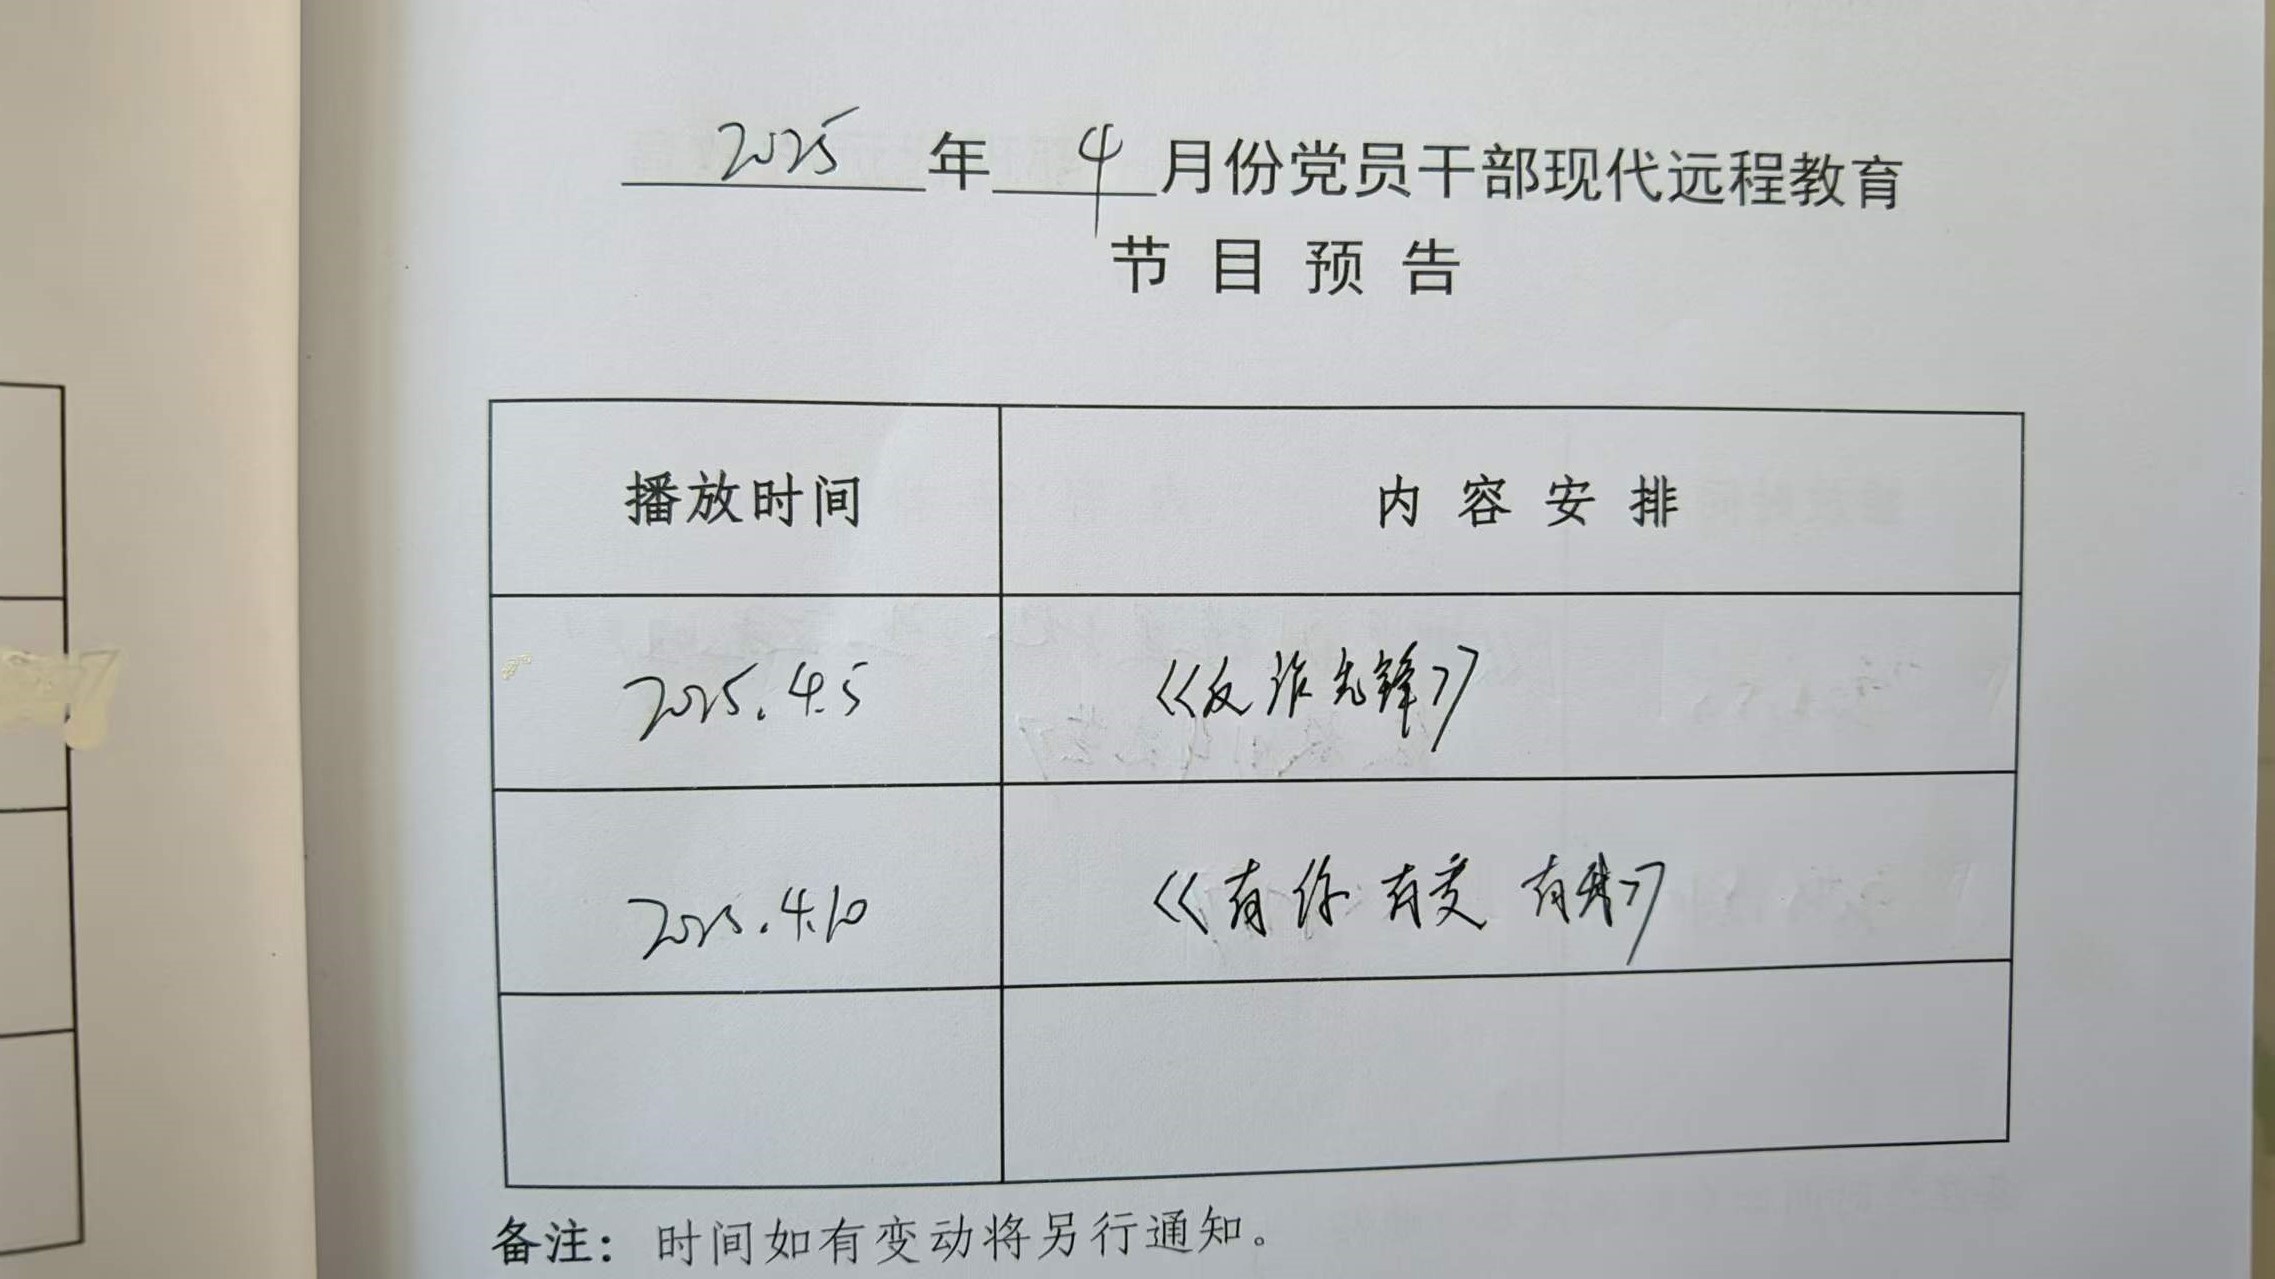 2025年4月份党员干部现代远程教育
节目预告
播放时间 内容安排
2025.4.5 《反诈先锋》
2025.4.10 《有你 有爱 有我》
备注：时间如有变动将另行通知。